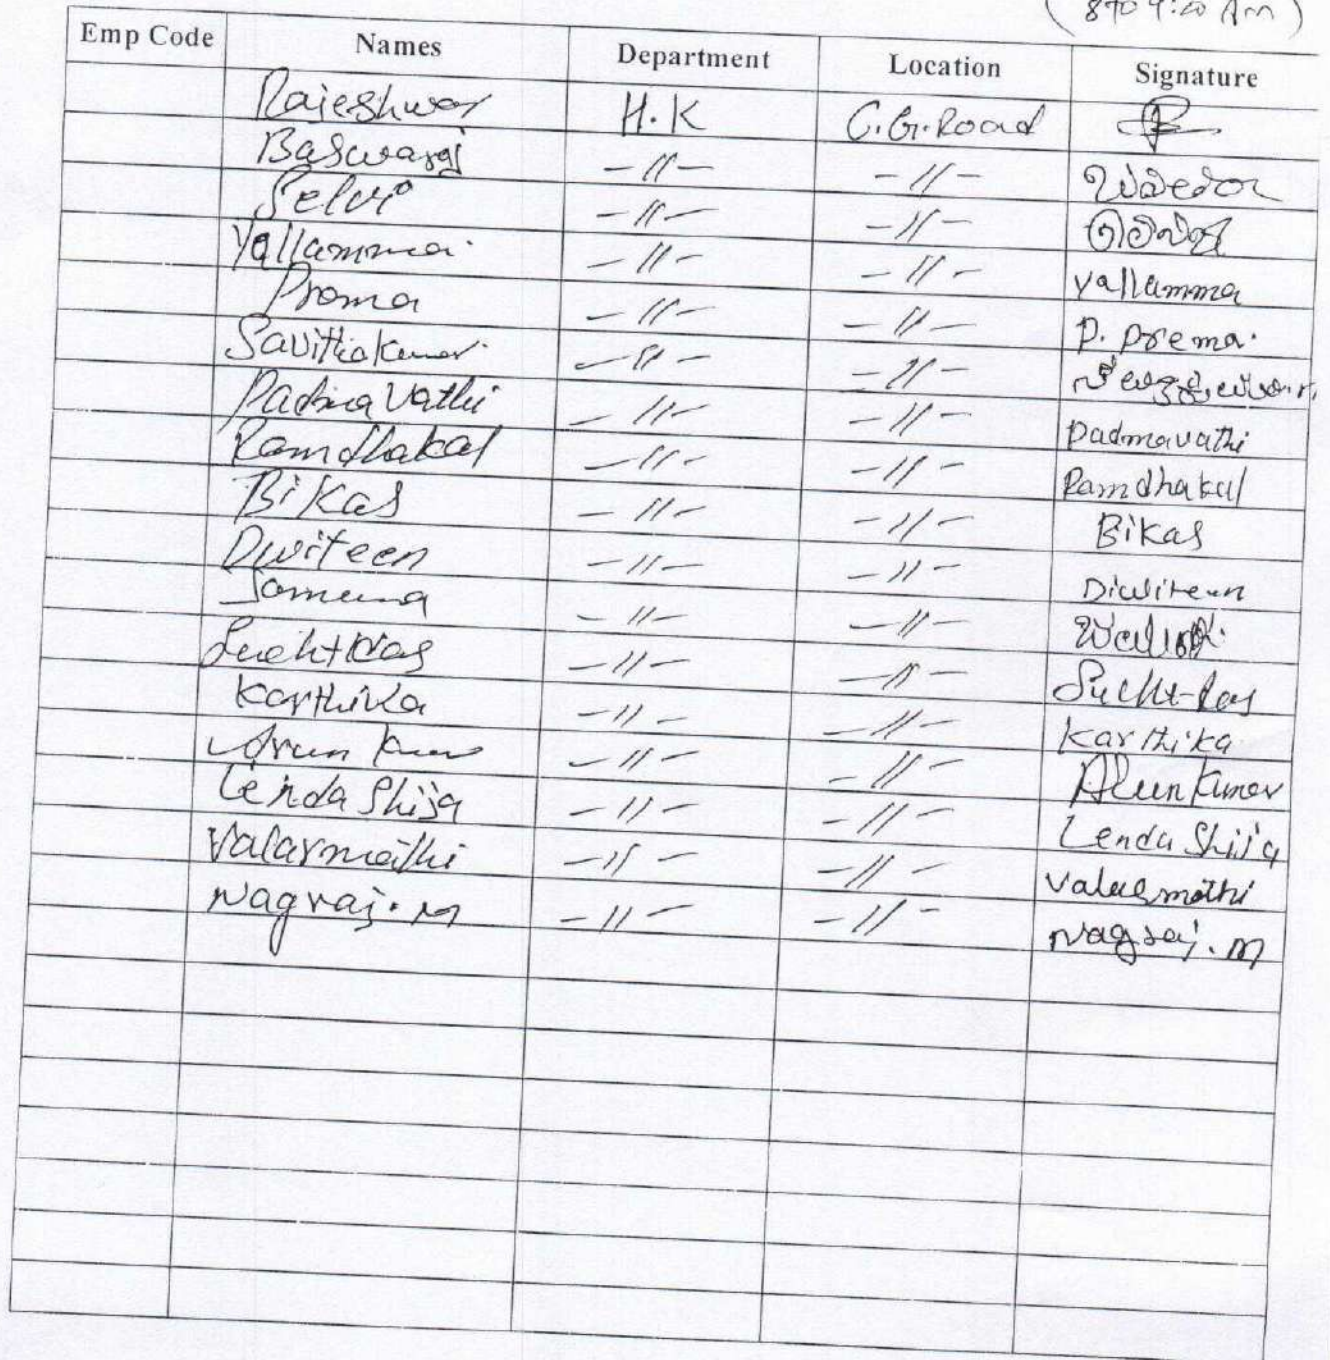 (8 to 9:20 Am)
Emp Code Names Department Location Signature
Rajeshwary H.K C.G.Road
Baswaraj -11- -11-
Selvi -11- -11- செல்வி
Yallamma -11- -11- Yallamma
Prema -11- -11- P. Prema.
Savithakumar. -11- -11-
Padmavathi -11- -11- Padmavathi
Ramdhakal -11- -11- Ramdhakal
Bikas -11- -11- Bikas
Dwiteen -11- -11- Diwiteen
Jamuna -11- -11-
Sucht Das -11- -11- Sucht-Das
Karthika -11- -11- Karthika
Arun Kumar -11- -11- Arun Kumar
Lenda Shija -11- -11- Lenda Shija
Valarmathi -11- -11- Valarmathi
Nagraj.M -11- -11- Nagraj.M